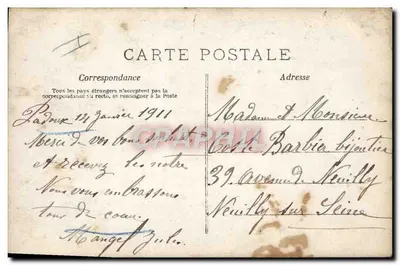 CARTE POSTALE
Correspondance
Tous les pays étrangers n'acceptent pas la
correspondance au recto, se renseigner à la Poste
Padoux 14 janvier 1911
Merci de vos bons souhaits
et recevez les notre
Nous vous embrassons
tous de coeur
Mangel Jules
Adresse
Madame & Monsieur
Barbier bijoutier
39 avenue de Neuilly
Neuilly sur Seine